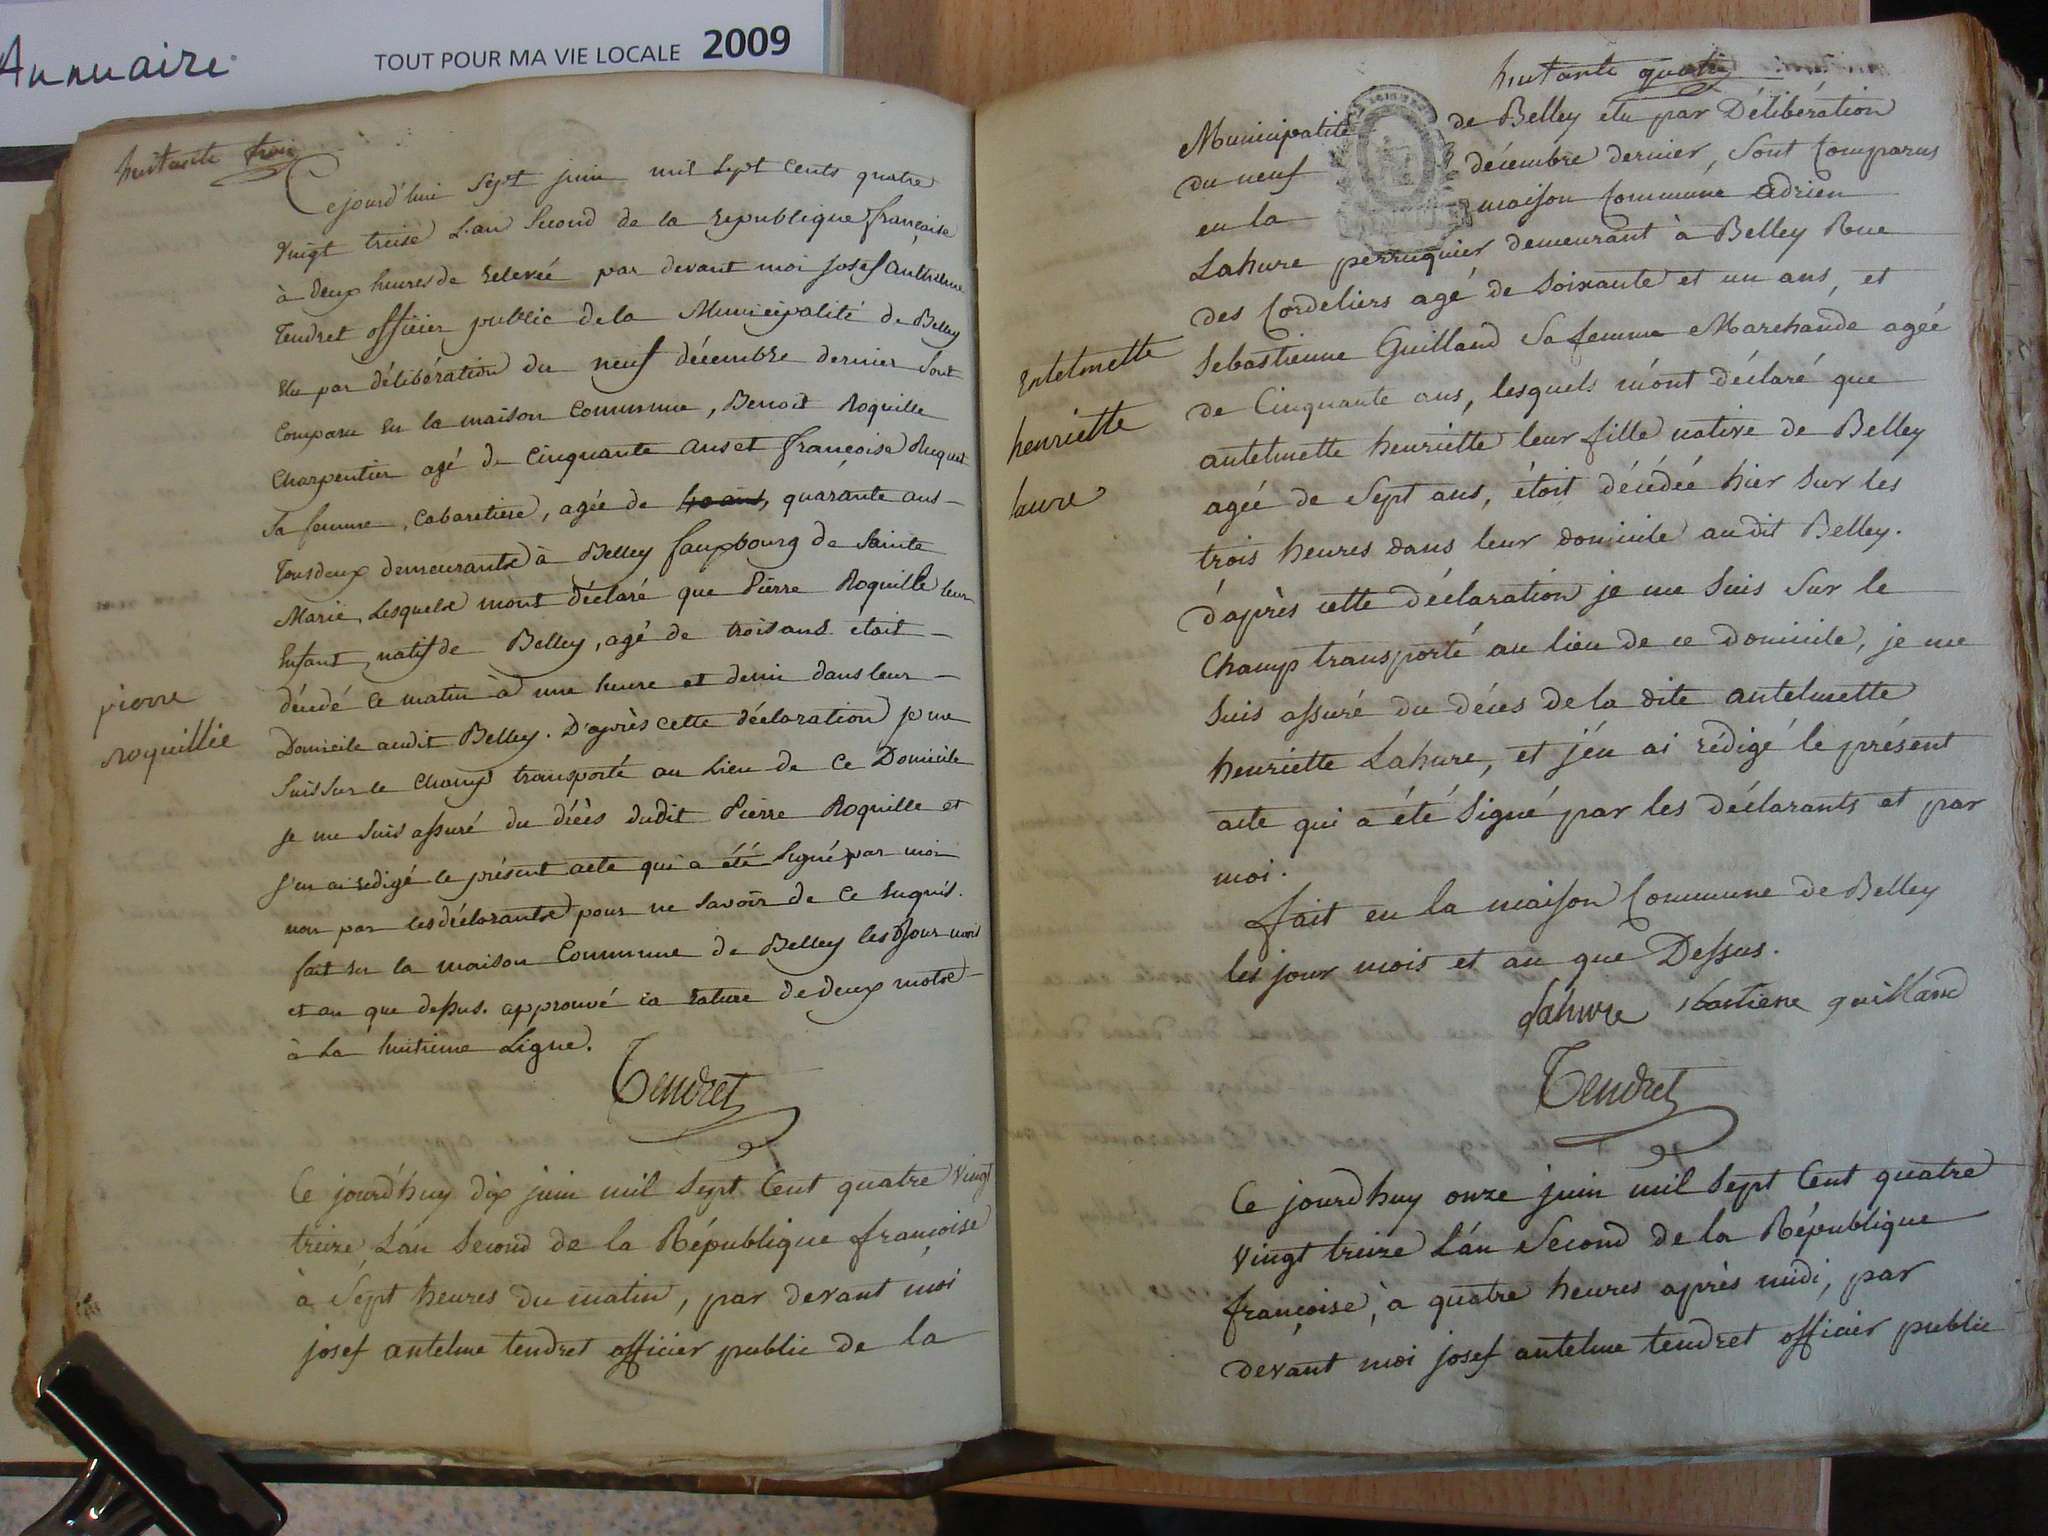 Annuaire
TOUT POUR MA VIE LOCALE 2009
huitante trois
Cejourd'hui sept juin mil sept cents quatre
vingt treise L'an Second de la republique françaisse
à deux heures de relevée par devant moi josef Anthelme
Tendret officier public de la Municipalité de Belley
elu par délibération du neuf décembre dernier sont
comparu en la maison commune, Benoit Roquille
Charpentier agé de Cinquante ans et françoise
sa femme, Cabaretiere, agée de 40 ans, quarante ans
tous deux demeurants à Belley fauxbourg de Sainte
Marie, Lesquels mont déclaré que Pierre Roquille leur
Enfant, natif de Belley, agé de trois ans etait
décédé ce matin à une heure et demi dans leur
Domicile audit Belley. D'après cette déclaration je me
suis sur le champ transporté au Lieu de Ce Domicile
je me suis assuré du décès dudit Pierre Roquille et
j'en ai redigé le présent acte qui a été signé par moi
non par les déclarants pour ne savoir de ce enquis.
fait en la maison Commune de Belley les jour mois
et an que dessus. approuvé la rature de deux mots
à la huitieme Ligne.
Tendret
pierre
roquillie
Ce jourd'huy dix juin mil sept Cent quatre vingt
treize L'an second de la République françoise
à Sept heures du matin, par devant moi
josef antelme tendret officier public de la
huitante quatre
Municipalité de Belley élu par Délibération
du neuf décembre dernier, sont Comparus
en la maison Commune Adrien
Lahure perruquier demeurant à Belley Rue
des Cordeliers agé de soixante et un ans, et
Sebastienne Guilland sa femme Marchande agée
de Cinquante ans, lesquels m'ont déclaré que
antelmette henriette leur fille native de Belley
agée de Sept ans, étoit décédée hier sur les
trois heures dans leur domicile audit Belley.
d'après cette déclaration je me suis sur le
Champ transporté au lieu de ce domicile, je me
suis assuré du décès de la dite antelmette
henriette Lahure, et j'en ai rédigé le présent
acte qui a été signé par les déclarants et par
moi.
fait en la maison Commune de Belley
les jour mois et an que Dessus.
Lahure guilland
Tendret
henriette
Ce jourd'huy onze juin mil sept Cent quatre
vingt treize L'an Second de la République
françoise, à quatre heures après midi, par
devant moi josef antelme tendret officier public